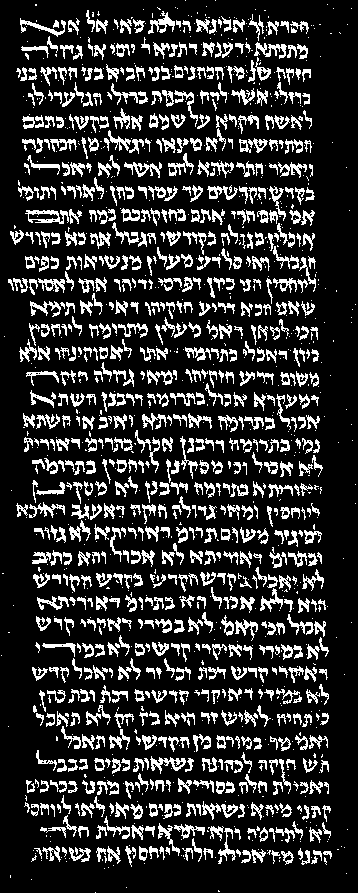 מתניתא דתניא ר יוסי או גדולה
חזקה שנ מן הכהנים בני חביא בני הקוץ בני
ברזלי אשר לקח מבנות ברזלי הגלעדי לו
לאשה ויקרא על שמם אלה בקשו כתבם
המתיחשים ולא נמצאו ויגאלו מן הכהונה
ויאמר התרשתא להם אשר לא יאכלו
בקדש הקדשים עד עמוד כהן לאורי ותומי
אמ להם הרי אתם בחזקתכם במה אתם
אוכלין בגולה בקודשי הגבול אף כא בקודש
הגבול ואי סל דע מעלין מנשיאות כפים
ליוחסין הני כיון דפרסי ידיהו אתו לאסוקינהו
שאני הכא דריע חזקיהו דאי לא תימא
הכי למאן דאמ מעלין מתרומה ליוחסין
כיון דאכלי בתרומה אתו לאסוקינהו אלא
משום דריע חזקיהו ומאי גדולה חזקה
דמעקרא אכול בתרומה דרבנן השתא
אכול בתרומה דאוריתא ואיב או השתא
נמי בתרומה דרבנן אכול בתרומ דאורית
לא אכול וכי מסקינן ליוחסין בתרומה
דאוריתא בתרומה דרבנן לא מסקינן
ליוחסין ומאי גדולה חזקה דאעגב דאיכא
למיגזר משום תרומ דאוריתא לא גזור
ובתרומ דאוריתא לא אכול והא כתוב
לא יאכלו בקדש הקדש בקדש הקודש
הוא דלא אכול הא בתרומ דאוריתא
אכול הכי קאמ לא במידי דאקרי קדש
לא במידי דאיקרי קדשים לא במידי
דאיקרי קדש דכת וכל זר לא יאכל קדש
לא במידי דאיקרי קדשים דכת ובת כהן
כי תהיה לאיש זר היא בת הק לא תאכל
ואמ מר במורם מן הקדשי לא תאכל
תש חזקה לכהונה נשיאות כפים בבבל
ואכילת חלה בסוריא וחילוק מתנו בכרכים
קתני מיהא נשיאות כפים מאי לאו ליוחסי
לא לתרומה והא דומיא דאכילת חלה
קתני מה אכילת חלה ליוחסין אף נשיאות